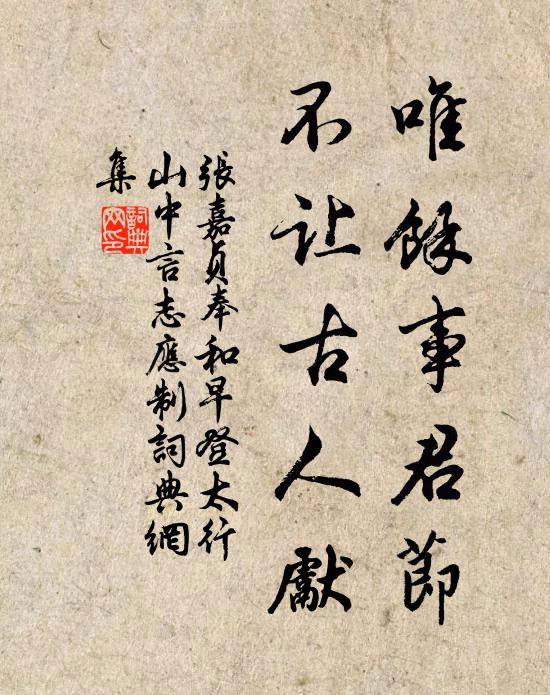 唯餘事君節
不让古人獻
張嘉貞奉和早登太行
山中言志應制詞典網
集
詞典
网印